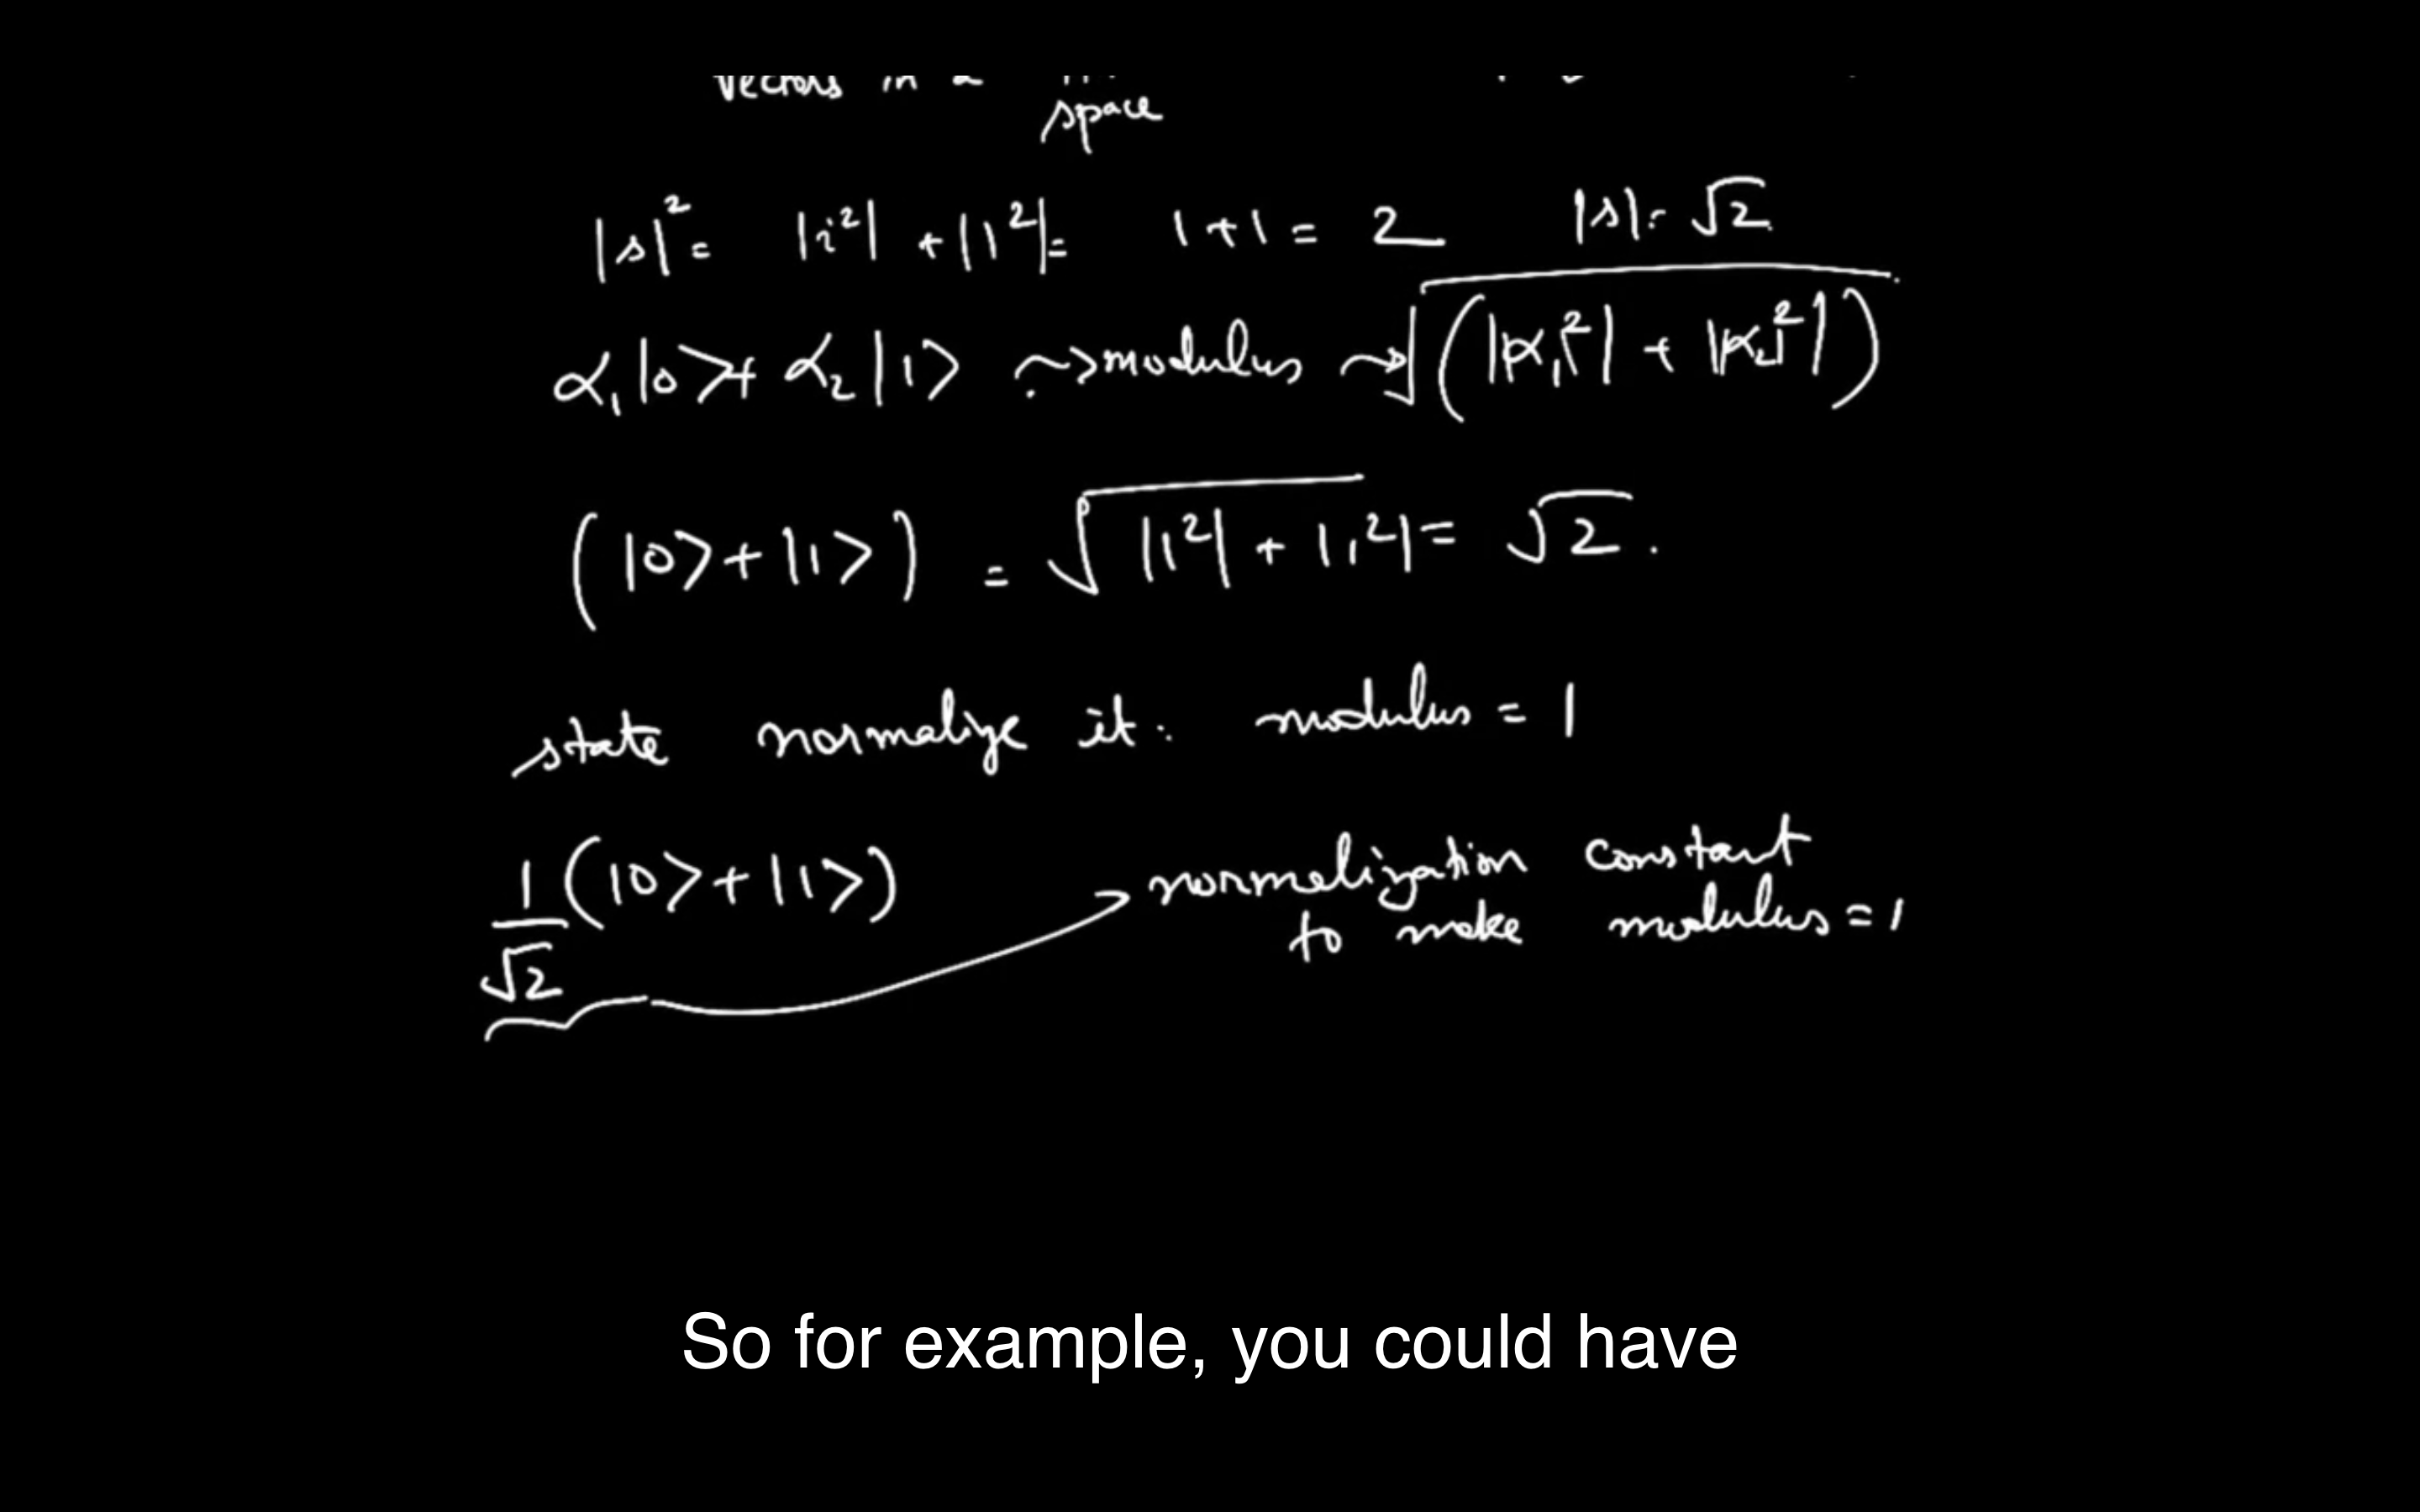 vectors in a
space
|s|² = |i²| + |1²| = 1 + 1 = 2 |s| = √2
α₁|0> + α₂|1> ~> modulus ~> √(|α₁|² + |α₂|²)
(|0> + |1>) = √|1²| + |1²| = √2.
state normalize it. modulus = 1
1/√2 (|0> + |1>) normalization constant
to make modulus = 1
So for example, you could have